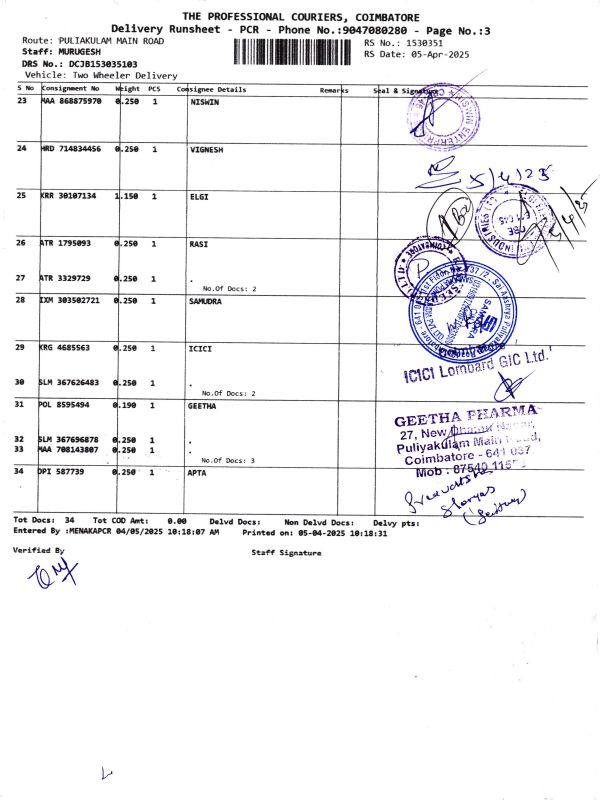 THE PROFESSIONAL COURIERS, COIMBATORE
Delivery Runsheet - PCR - Phone No.:9047080280 - Page No.:3
Route: PULIAKULAM MAIN ROAD
RS No.: 1530351
Staff: MURUGESH
RS Date: 05-Apr-2025
DRS No.: DCJB153035103
Vehicle: Two Wheeler Delivery
S No Consignment No Weight PCS Consignee Details Remarks Seal & Signature
23 MAA 868875970 0.250 1 NISWIN
24 HRD 714834456 0.250 1 VIGNESH
5/4/25
25 KRR 30107134 1.150 1 ELGI
26 ATR 1795093 0.250 1 RASI
27 ATR 3329729 0.250 1 .
No.Of Docs: 2
28 IXM 303502721 0.250 1 SAMUDRA
29 KRG 4685563 0.250 1 ICICI
ICICI Lombard GIC Ltd.
30 SLM 367626483 0.250 1 .
No.Of Docs: 2
31 POL 8595494 0.190 1 GEETHA
GEETHA PHARMA
27, New Nagar,
Puliyakulam Main Road,
Coimbatore - 641 037
Mob : 87540
32 SLM 367696878 0.250 1 .
33 MAA 708143807 0.250 1 .
No.Of Docs: 3
34 DPI 587739 0.250 1 APTA
Tot Docs: 34 Tot COD Amt: 0.00 Delvd Docs: Non Delvd Docs: Delvy pts:
Entered By :MENAKAPCR 04/05/2025 10:18:07 AM Printed on: 05-04-2025 10:18:31
Verified By Staff Signature